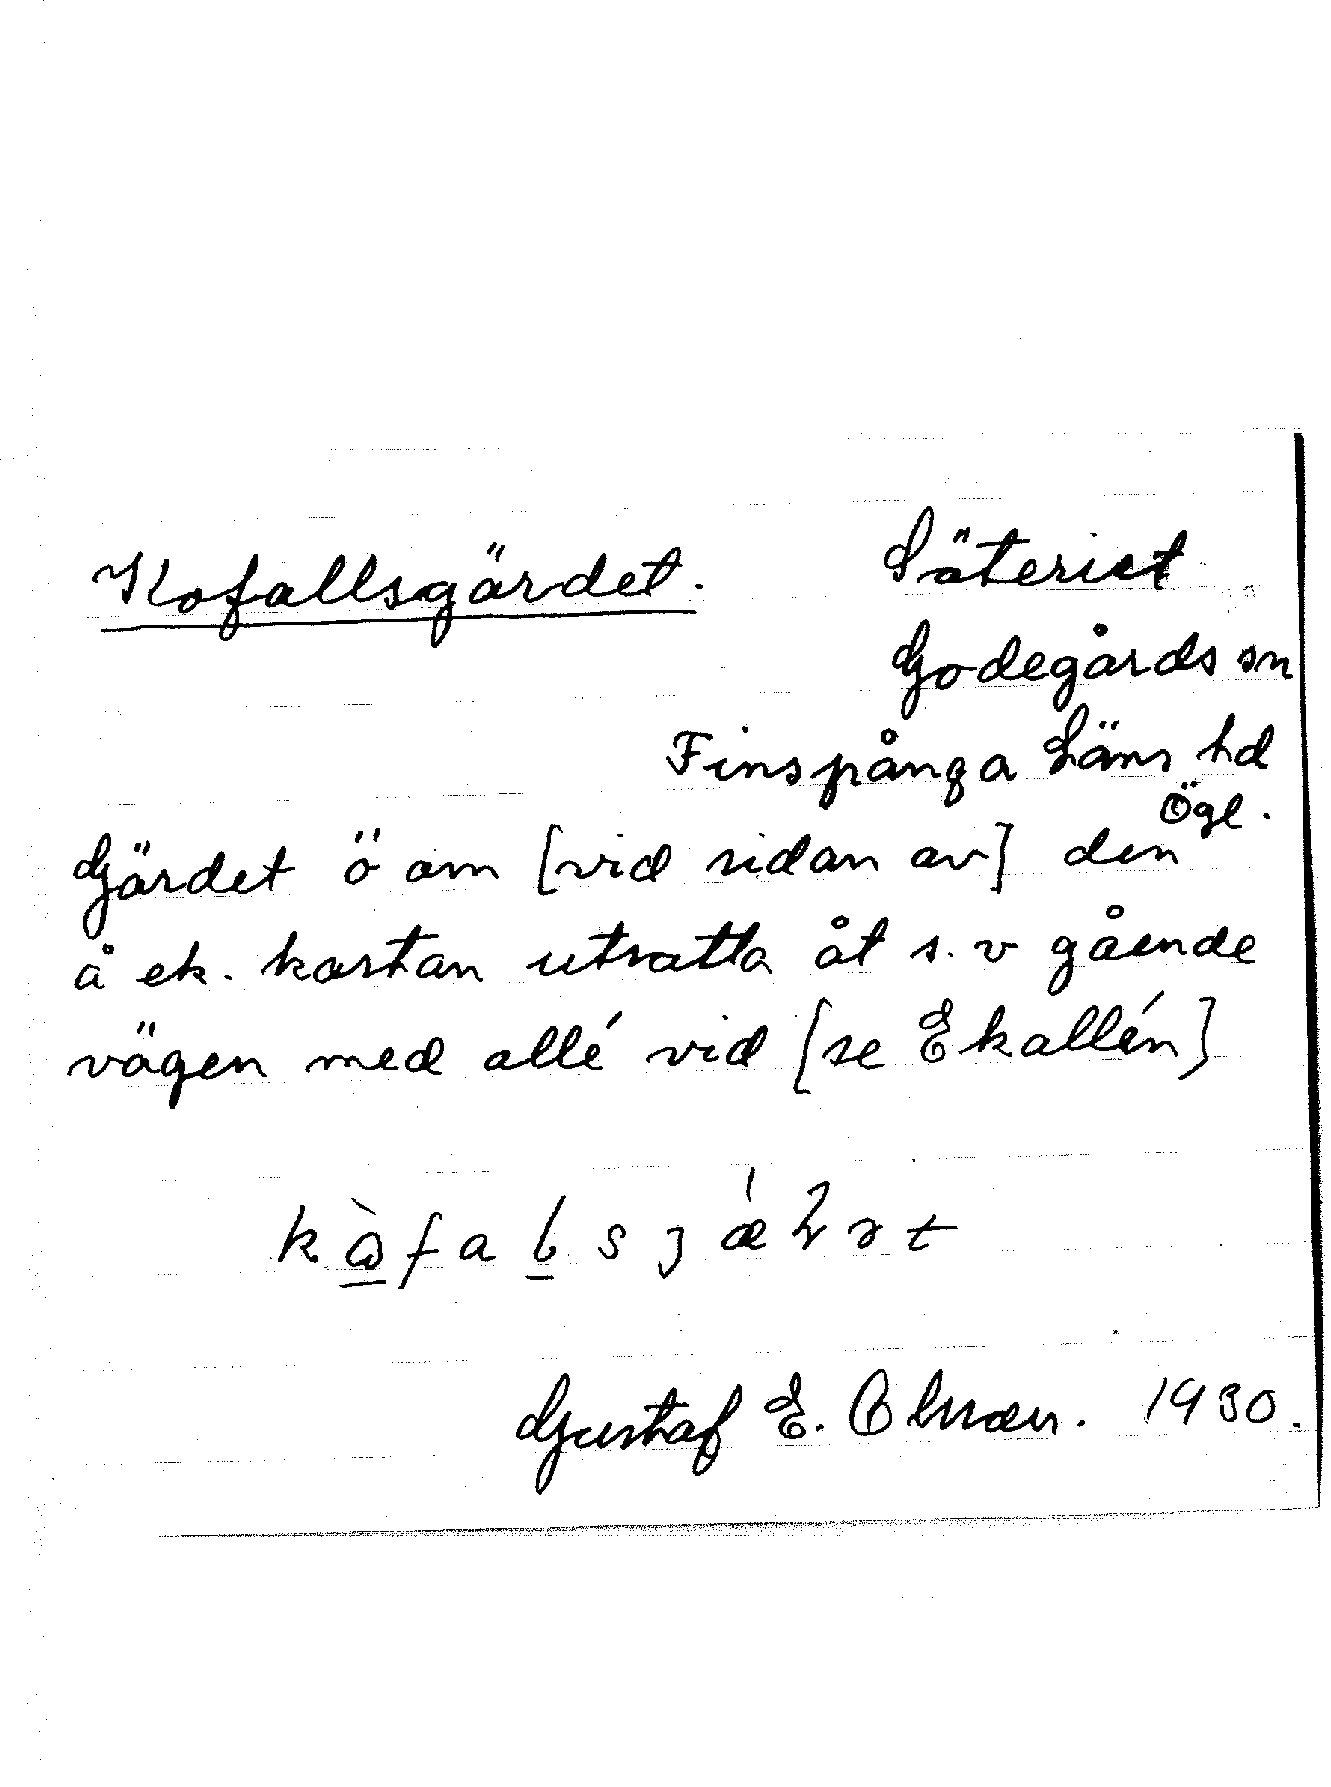 Kofallsgärdet. Säteriet
Godegårds sn
Finspånga Läns hd
Ögl.
Gärdet ö om [vid sidan av] den
å ek. kartan utsatta åt s. v gående
vägen med allé vid [se Ekallén]
Gustaf E. 1930.